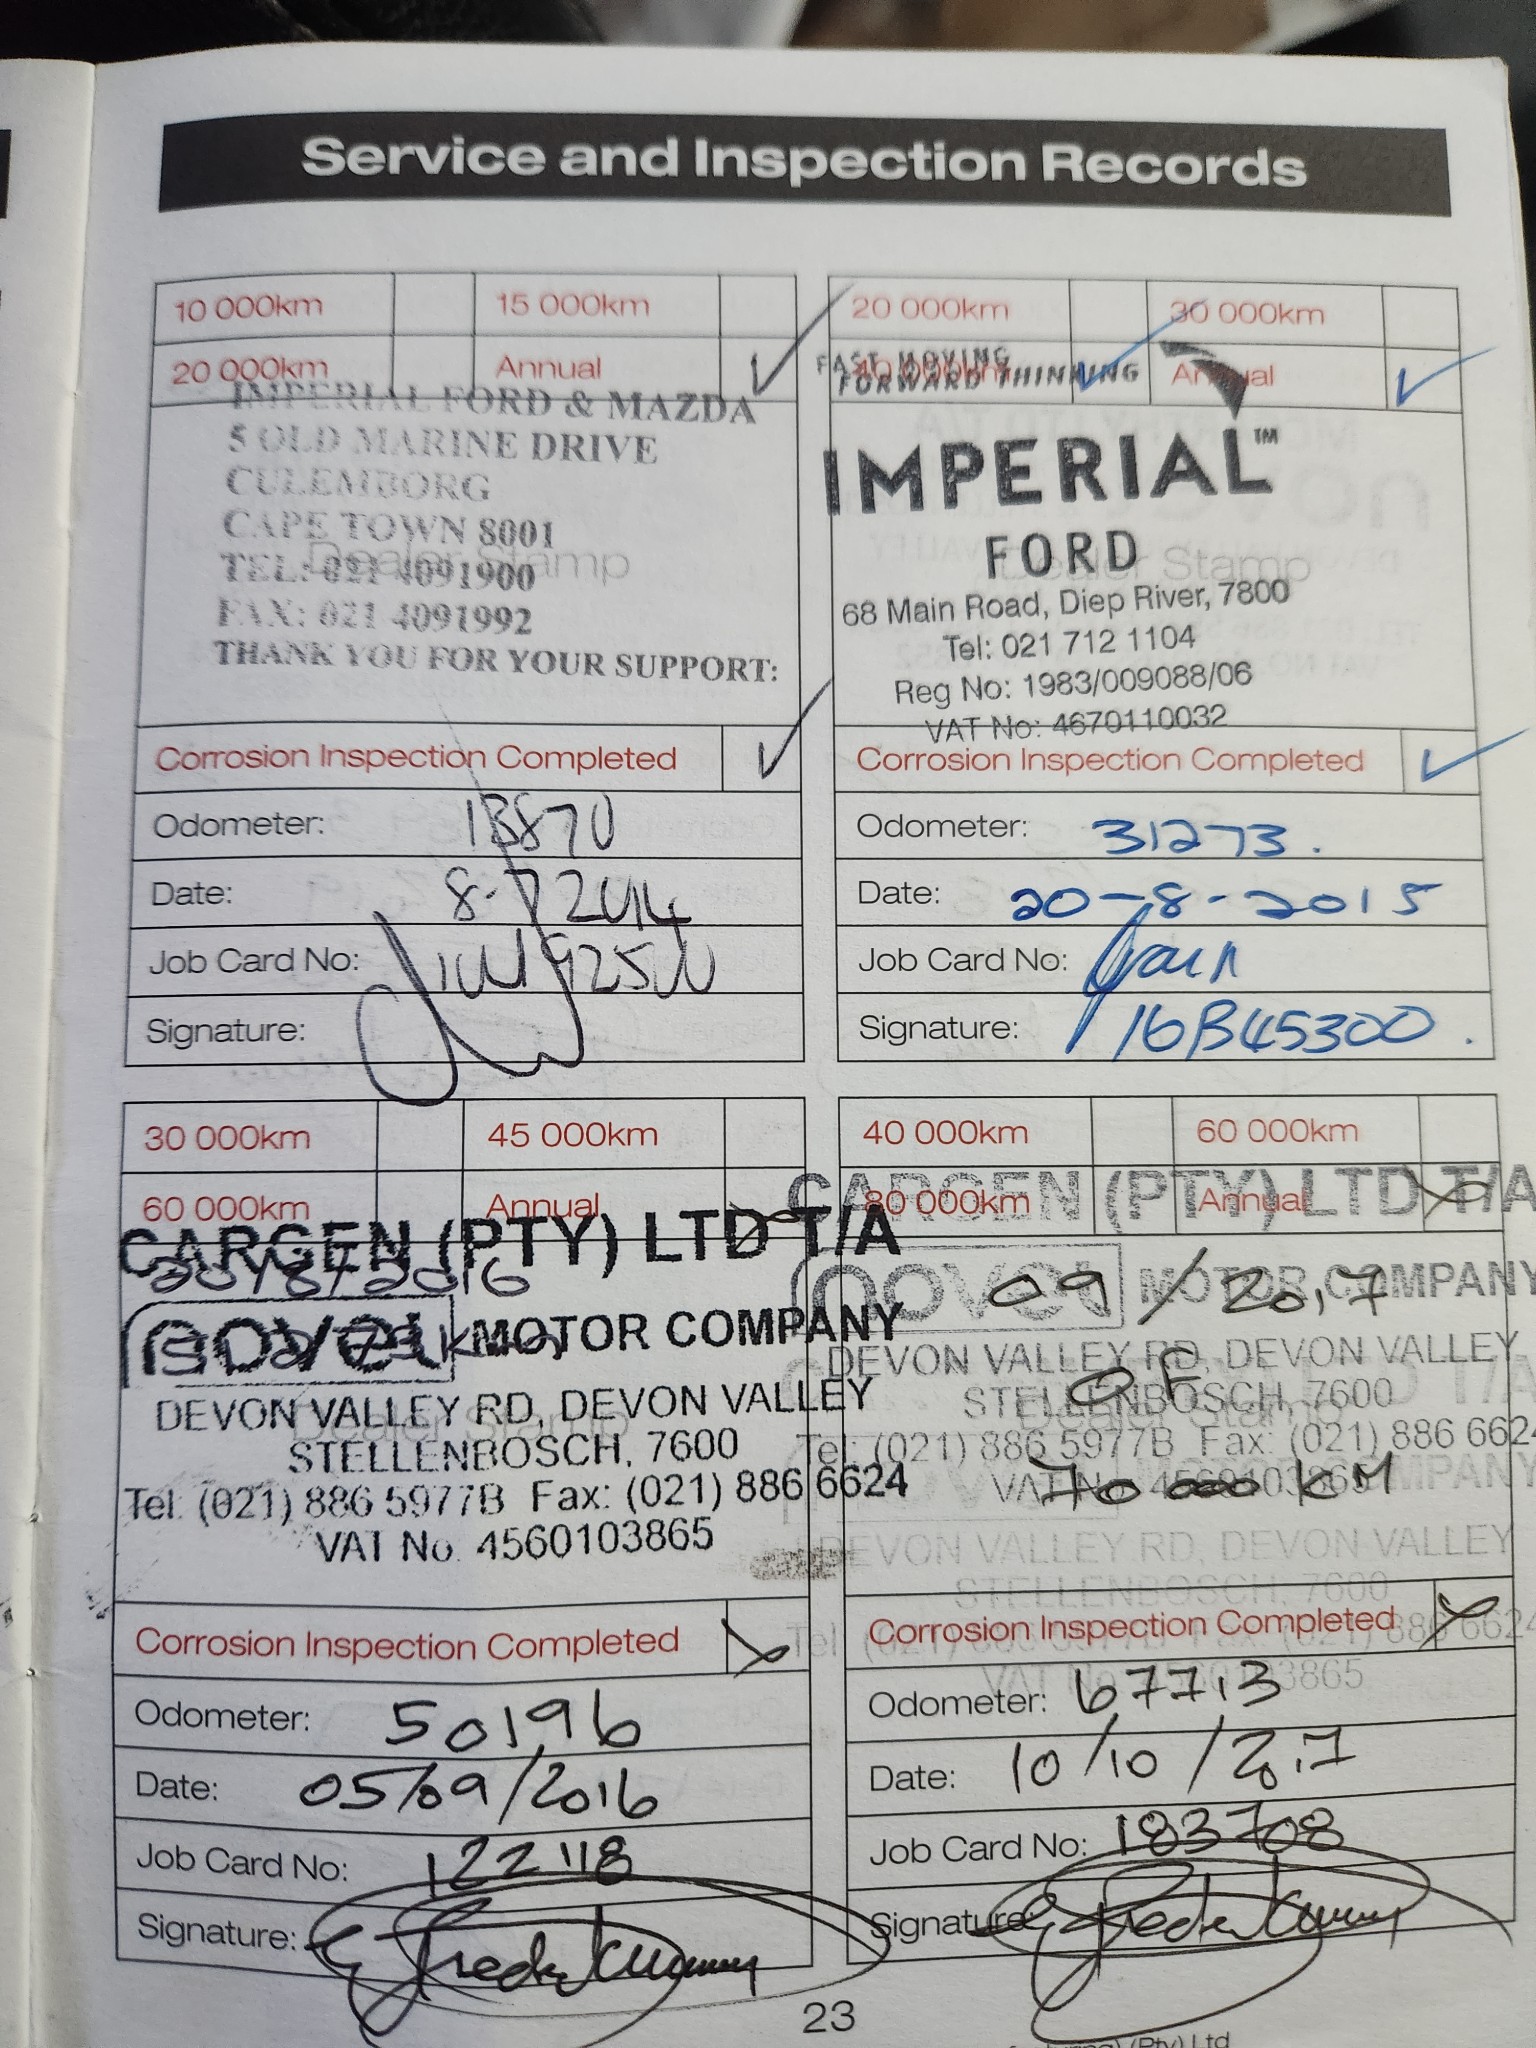 Service and Inspection Records
10 000km 15 000km
20 000km Annual
IMPERIAL FORD & MAZDA
5 OLD MARINE DRIVE
CULEMBORG
CAPE TOWN 8001
Dealer Stamp
TEL: 021 4091900
FAX: 021 4091992
THANK YOU FOR YOUR SUPPORT:
Corrosion Inspection Completed
Odometer: 13870
Date: 8-7 2014
Job Card No:
Signature:
20 000km 30 000km
40 000km Annual
FAST MOVING
FORWARD THINKING
IMPERIAL™
FORD
Dealer Stamp
68 Main Road, Diep River, 7800
Tel: 021 712 1104
Reg No: 1983/009088/06
VAT No: 4670110032
Corrosion Inspection Completed
Odometer: 31273.
Date: 20-8-2015
Job Card No:
Signature: 16B45300.
30 000km 45 000km
60 000km Annual
CARGEN (PTY) LTD T/A
20/8/2016
novel MOTOR COMPANY
DEVON VALLEY RD, DEVON VALLEY
Dealer Stamp
STELLENBOSCH, 7600
Tel: (021) 886 5977B Fax: (021) 886 6624
VAT No. 4560103865
Corrosion Inspection Completed
Odometer: 50196
Date: 05/09/2016
Job Card No: 122118
Signature:
40 000km 60 000km
80 000km Annual
CARGEN (PTY) LTD T/A
novel MOTOR COMPANY
09/2017
DEVON VALLEY RD, DEVON VALLEY
OF
STELLENBOSCH, 7600
Dealer Stamp
Tel: (021) 886 5977B Fax: (021) 886 662
VAT No. 4560103865
70 000 KM
DEVON VALLEY RD, DEVON VALLEY
STELLENBOSCH, 7600
Corrosion Inspection Completed
Odometer: 67713
Date: 10/10/2017
Job Card No: 183708
Signature:
23
(Pty) Ltd